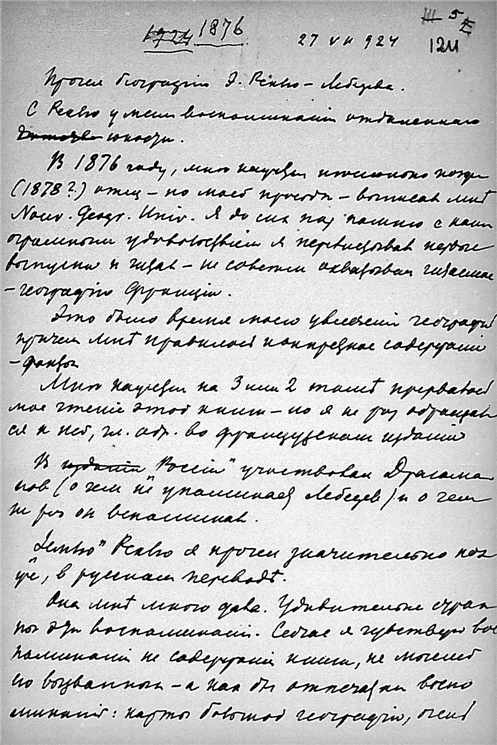 1924 1876
27 VII 924
III 5
1211
Прочел биографию Э. Реклю – Лебедева.
С Реклю у меня воспоминания отдаленного
юности.
В 1876 году, мне кажется немного позже
(1878?) отец – по моей просьбе – выписал мнѣ
Nouv. Géogr. Univ. Я до сих пор помню с каким
огромным удовольствием я перелистывал первые
выпуски и читал – не совсем
– географию Франции.
Это было время моего увлечения географией
причем мнѣ нравилось конкретное содержание
– факты
Мнѣ кажется на 3 или 2 томѣ прервалось
мое чтение этой книги – но я не раз обращал-
ся к ней, гл. обр. во французском издании
В издании "России" участвовал Драгома-
нов (о чем не упоминает Лебедев) и о чем
не раз он вспоминал.
"Землю" Реклю я прочел значительно поз-
же, в русском переводѣ.
Она мнѣ много дала. Удивительно стран-
ны эти воспоминания. Сейчас я чувствую вос-
поминания не содержания книги, не мыслей
ею вызванных – а как бы отпечатки воспо
минаний: карты большой географии,